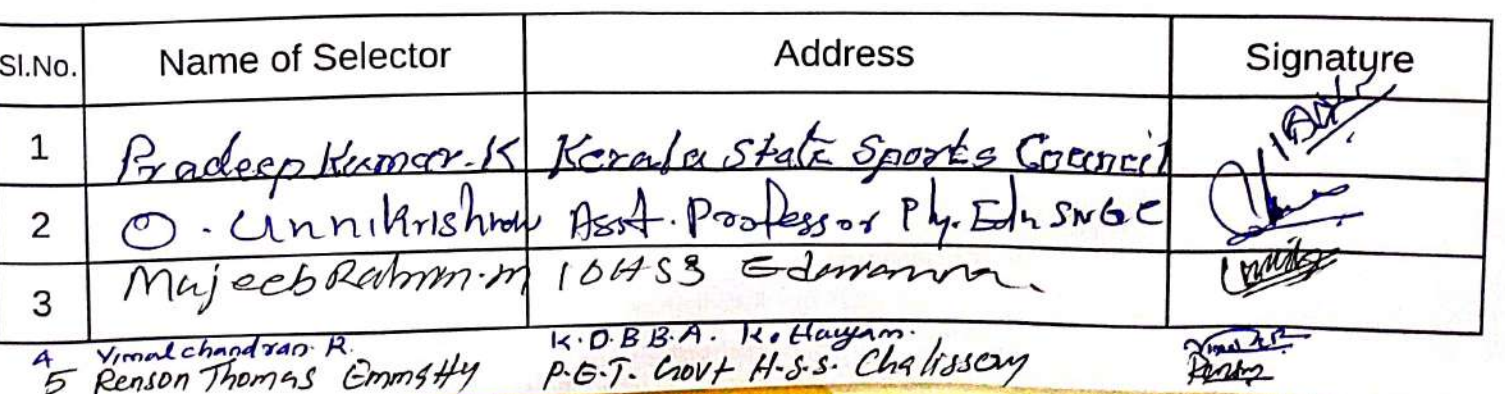 Sl.No. Name of Selector Address Signature
1 Pradeep Kumar.K Kerala State Sports Council
2 O. Unnikrishnan Asst. Professor Phy. Edn SNGC
3 Mujeeb Rahman.m IOHSS Edavanna.
4 Vimalchandran. R. K.D.B.B.A. Kottayam.
5 Renson Thomas P.E.T. Govt H.S.S. Chalissery